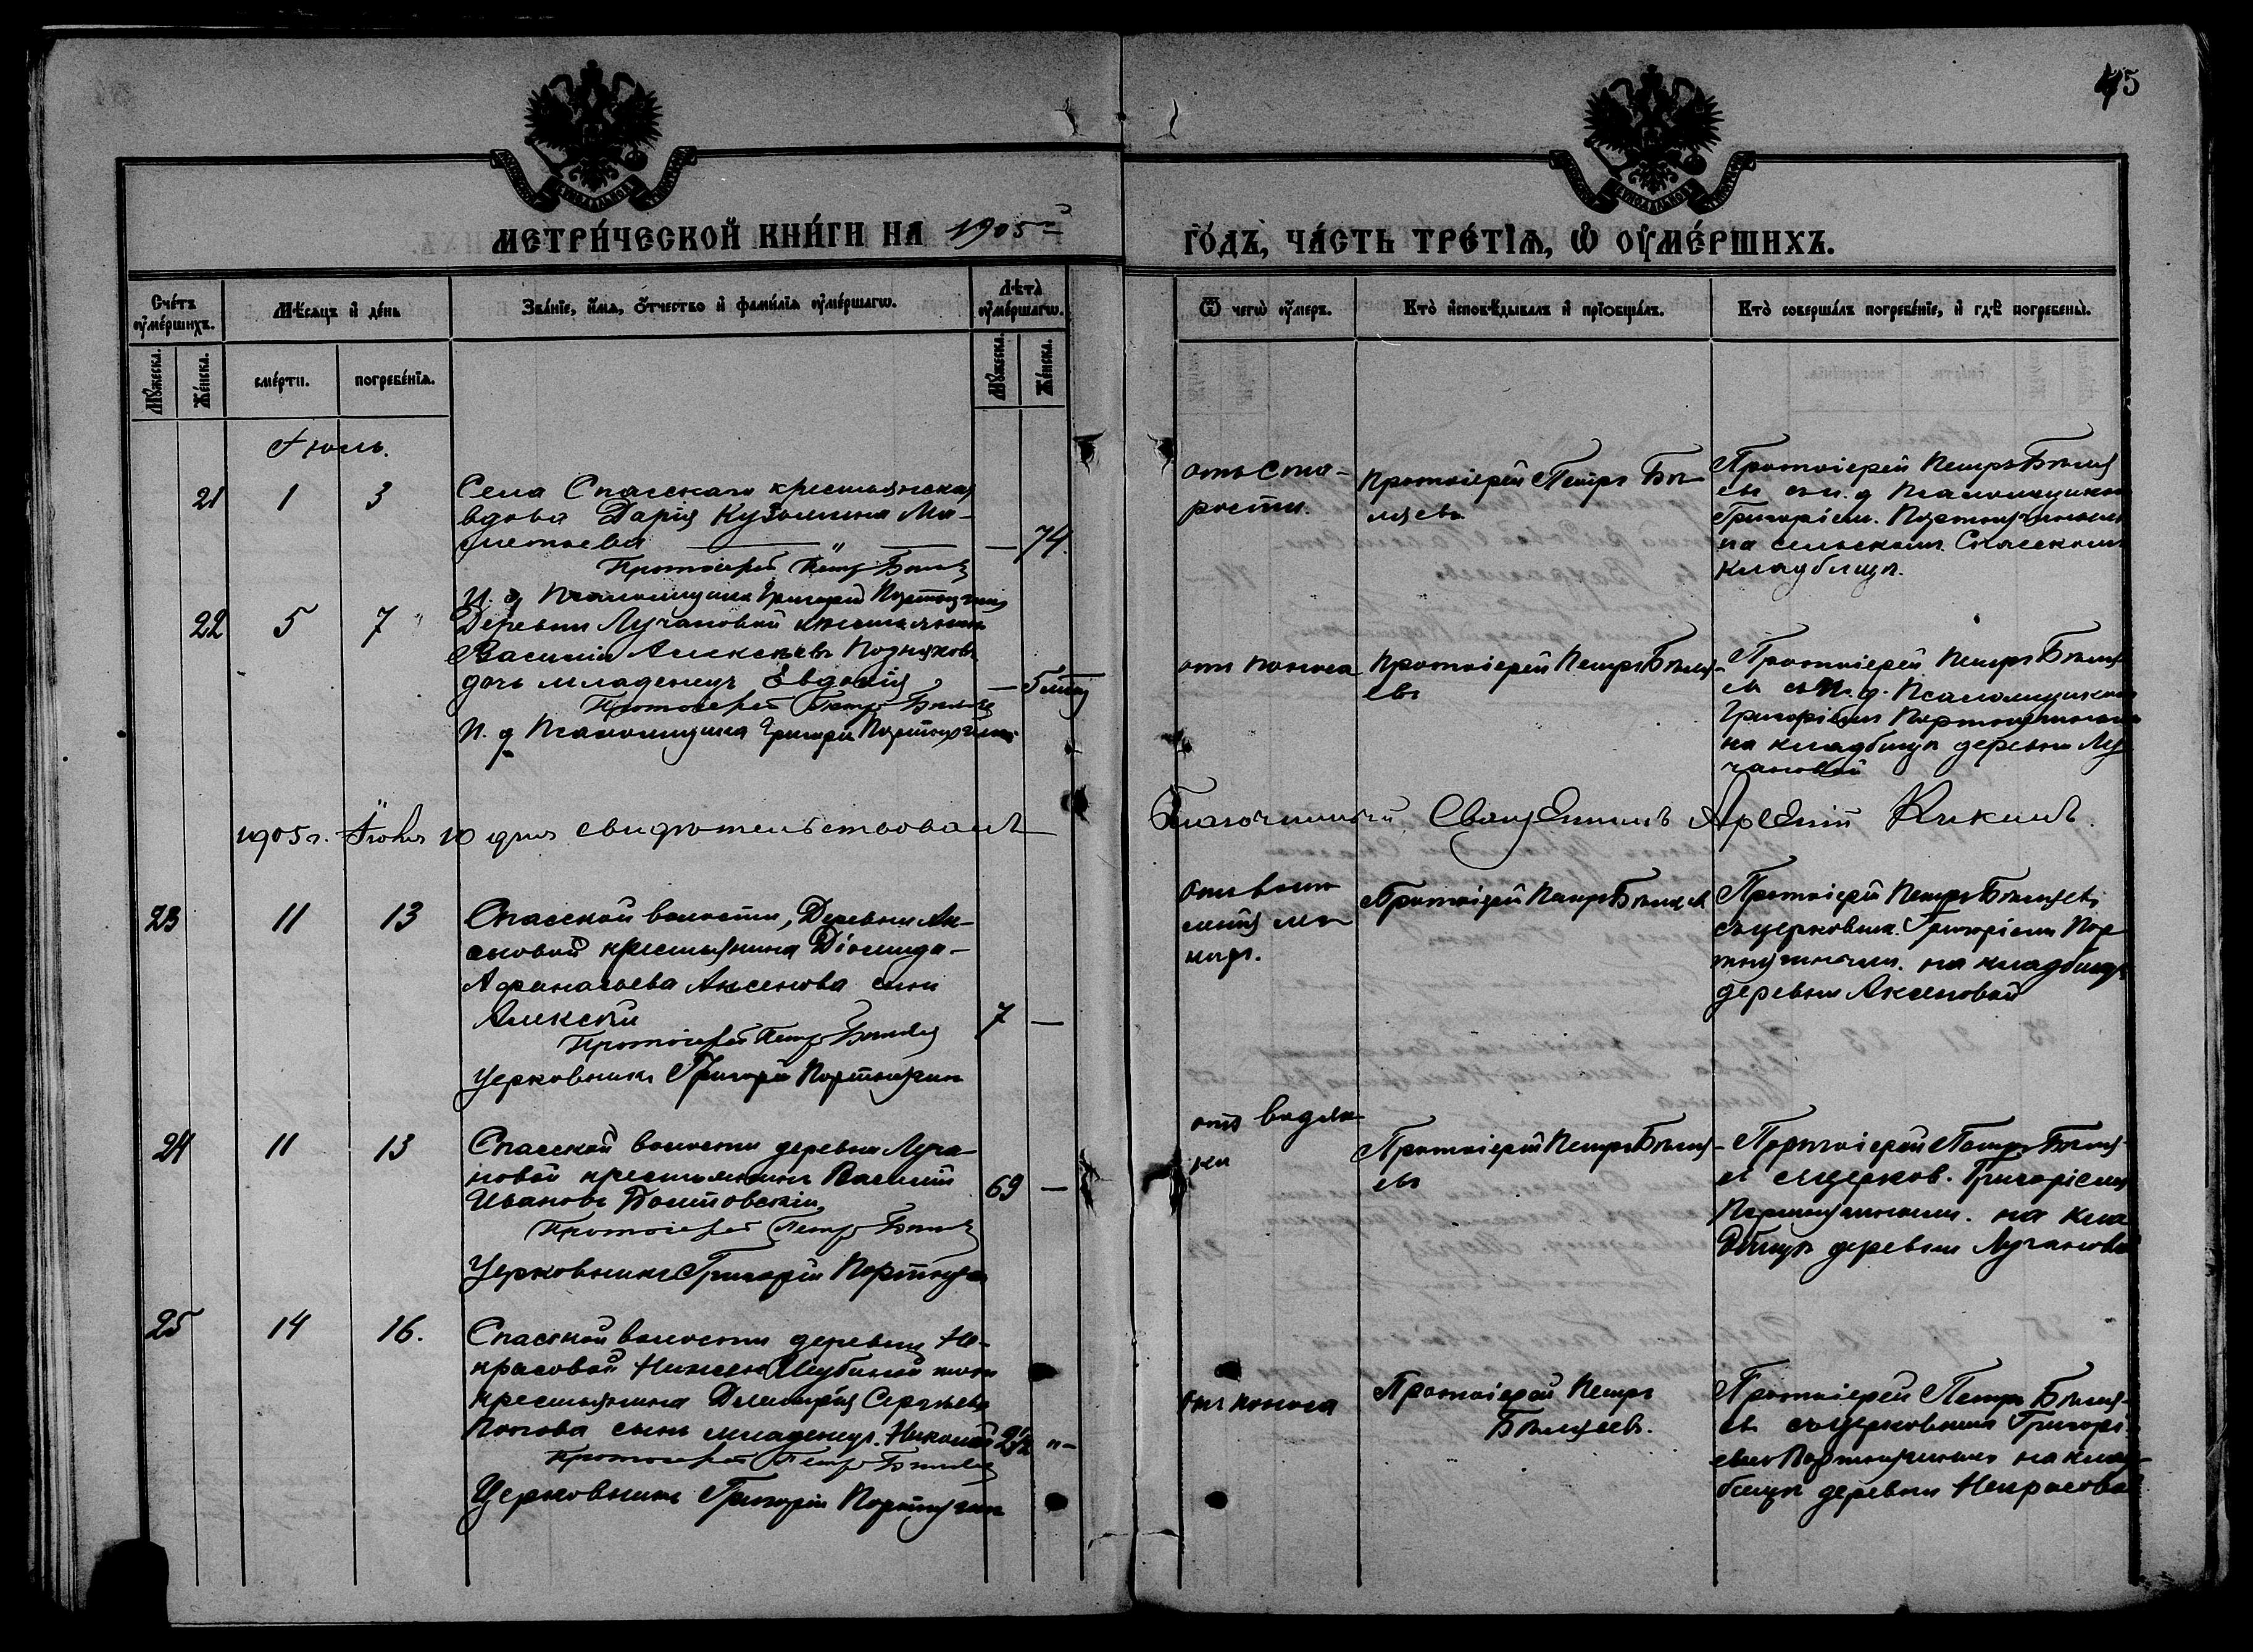 45
МЕТРИ́ЧЕСКОЙ КНИ́ГИ НА 1905й
ГО́ДЪ, ЧА́СТЬ ТРЕ́ТІѦ, Ѡ ОУМЕ́РШИХЪ.
Сче́тъ оумершихъ.
Мѣ́сяцъ и де́нь
Зва́ніе, и́мѧ, о́тчество и фами́лїѧ оуме́ршагѡ.
Лѣта̀ оуме́ршагѡ.
Мꙋ́жеска.
Же́нска.
сме́рти.
погребе́нїѧ.
Мꙋ́жеска.
Же́нска.
Ѿ чегѡ̀ оу́меръ.
Кто̀ исповѣ́дывалъ и прїобща́лъ.
Кто̀ соверша́лъ погребе́нїе, и гдѣ̀ погребены̀.
Іюль.
21 1 3
Села Спасскаго крестьянская
вдова Дарія Кузьмина Ма-
— 74.
Протоіерей Петръ Бѣляевъ
И. д Псаломщика Григорій Портнягинъ
отъ ста-
рости.
Протоіерей Петръ Бѣ-
ляевъ
Протоіерей Петръ Бѣля
евъ съ и. д Псаломщика
Григоріемъ Портнягинымъ
на сельскомъ Спасскомъ
кладбищѣ.
22 5 7
Деревни Лучановой крестьянина
Василія Алексѣева Позднякова
дочь младенецъ Евдокія
— 5 мѣсяц
Протоіерей Петръ Бѣляевъ
И. д Псаломщика Григорій Портнягинъ
отъ поноса
Протоіерей Петръ Бѣля-
евъ
Протоіерей Петръ Бѣля
евъ съ И. д. Псаломщика
Григоріемъ Портнягинымъ
на кладбищѣ деревни Лу
чановой
1905 г. Іюля 10 дня свидѣтельствовалъ
Благочинный, Священникъ Арсеній Кикинъ.
23 11 13
Спасской волости, Деревни Ак-
сеновой крестьянина Діомида
Афанасьева Аксенова сынъ
Алексѣй
7 —
Протоіерей Петръ Бѣляевъ
Церковникъ Григорій Портнягинъ
Протоіерей Петръ Бѣляевъ
Протоіерей Петръ Бѣляевъ
съ церковник. Григоріемъ Пор
тнягинымъ. на кладбищѣ
деревни Аксеновой
24 11 13
Спасской волости деревни Луча
новой крестьянинъ Василій
Ивановъ
69 —
Протоіерей Петръ Бѣляевъ
Церковникъ Григорій Портнягинъ
отъ водян
ки
Протоіерей Петръ Бѣля-
евъ
Протоіерей Петръ Бѣля-
евъ съ церков. Григоріемъ
Портнягинымъ. на кла
дбищѣ деревни Лучановой
25 14 16.
Спасской волости деревни Не-
красовой
крестьянина Димитрія Сергѣева
Попова сынъ младенецъ. Николай 2½ "-
Протоіерей Петръ Бѣляевъ
Церковникъ Григорій Портнягинъ
отъ поноса
Протоіерей Петръ
Бѣляевъ.
Протоіерей Петръ Бѣля-
евъ съ церковник Григорі
емъ Портнягинымъ на клад
бищѣ деревни Некрасовой